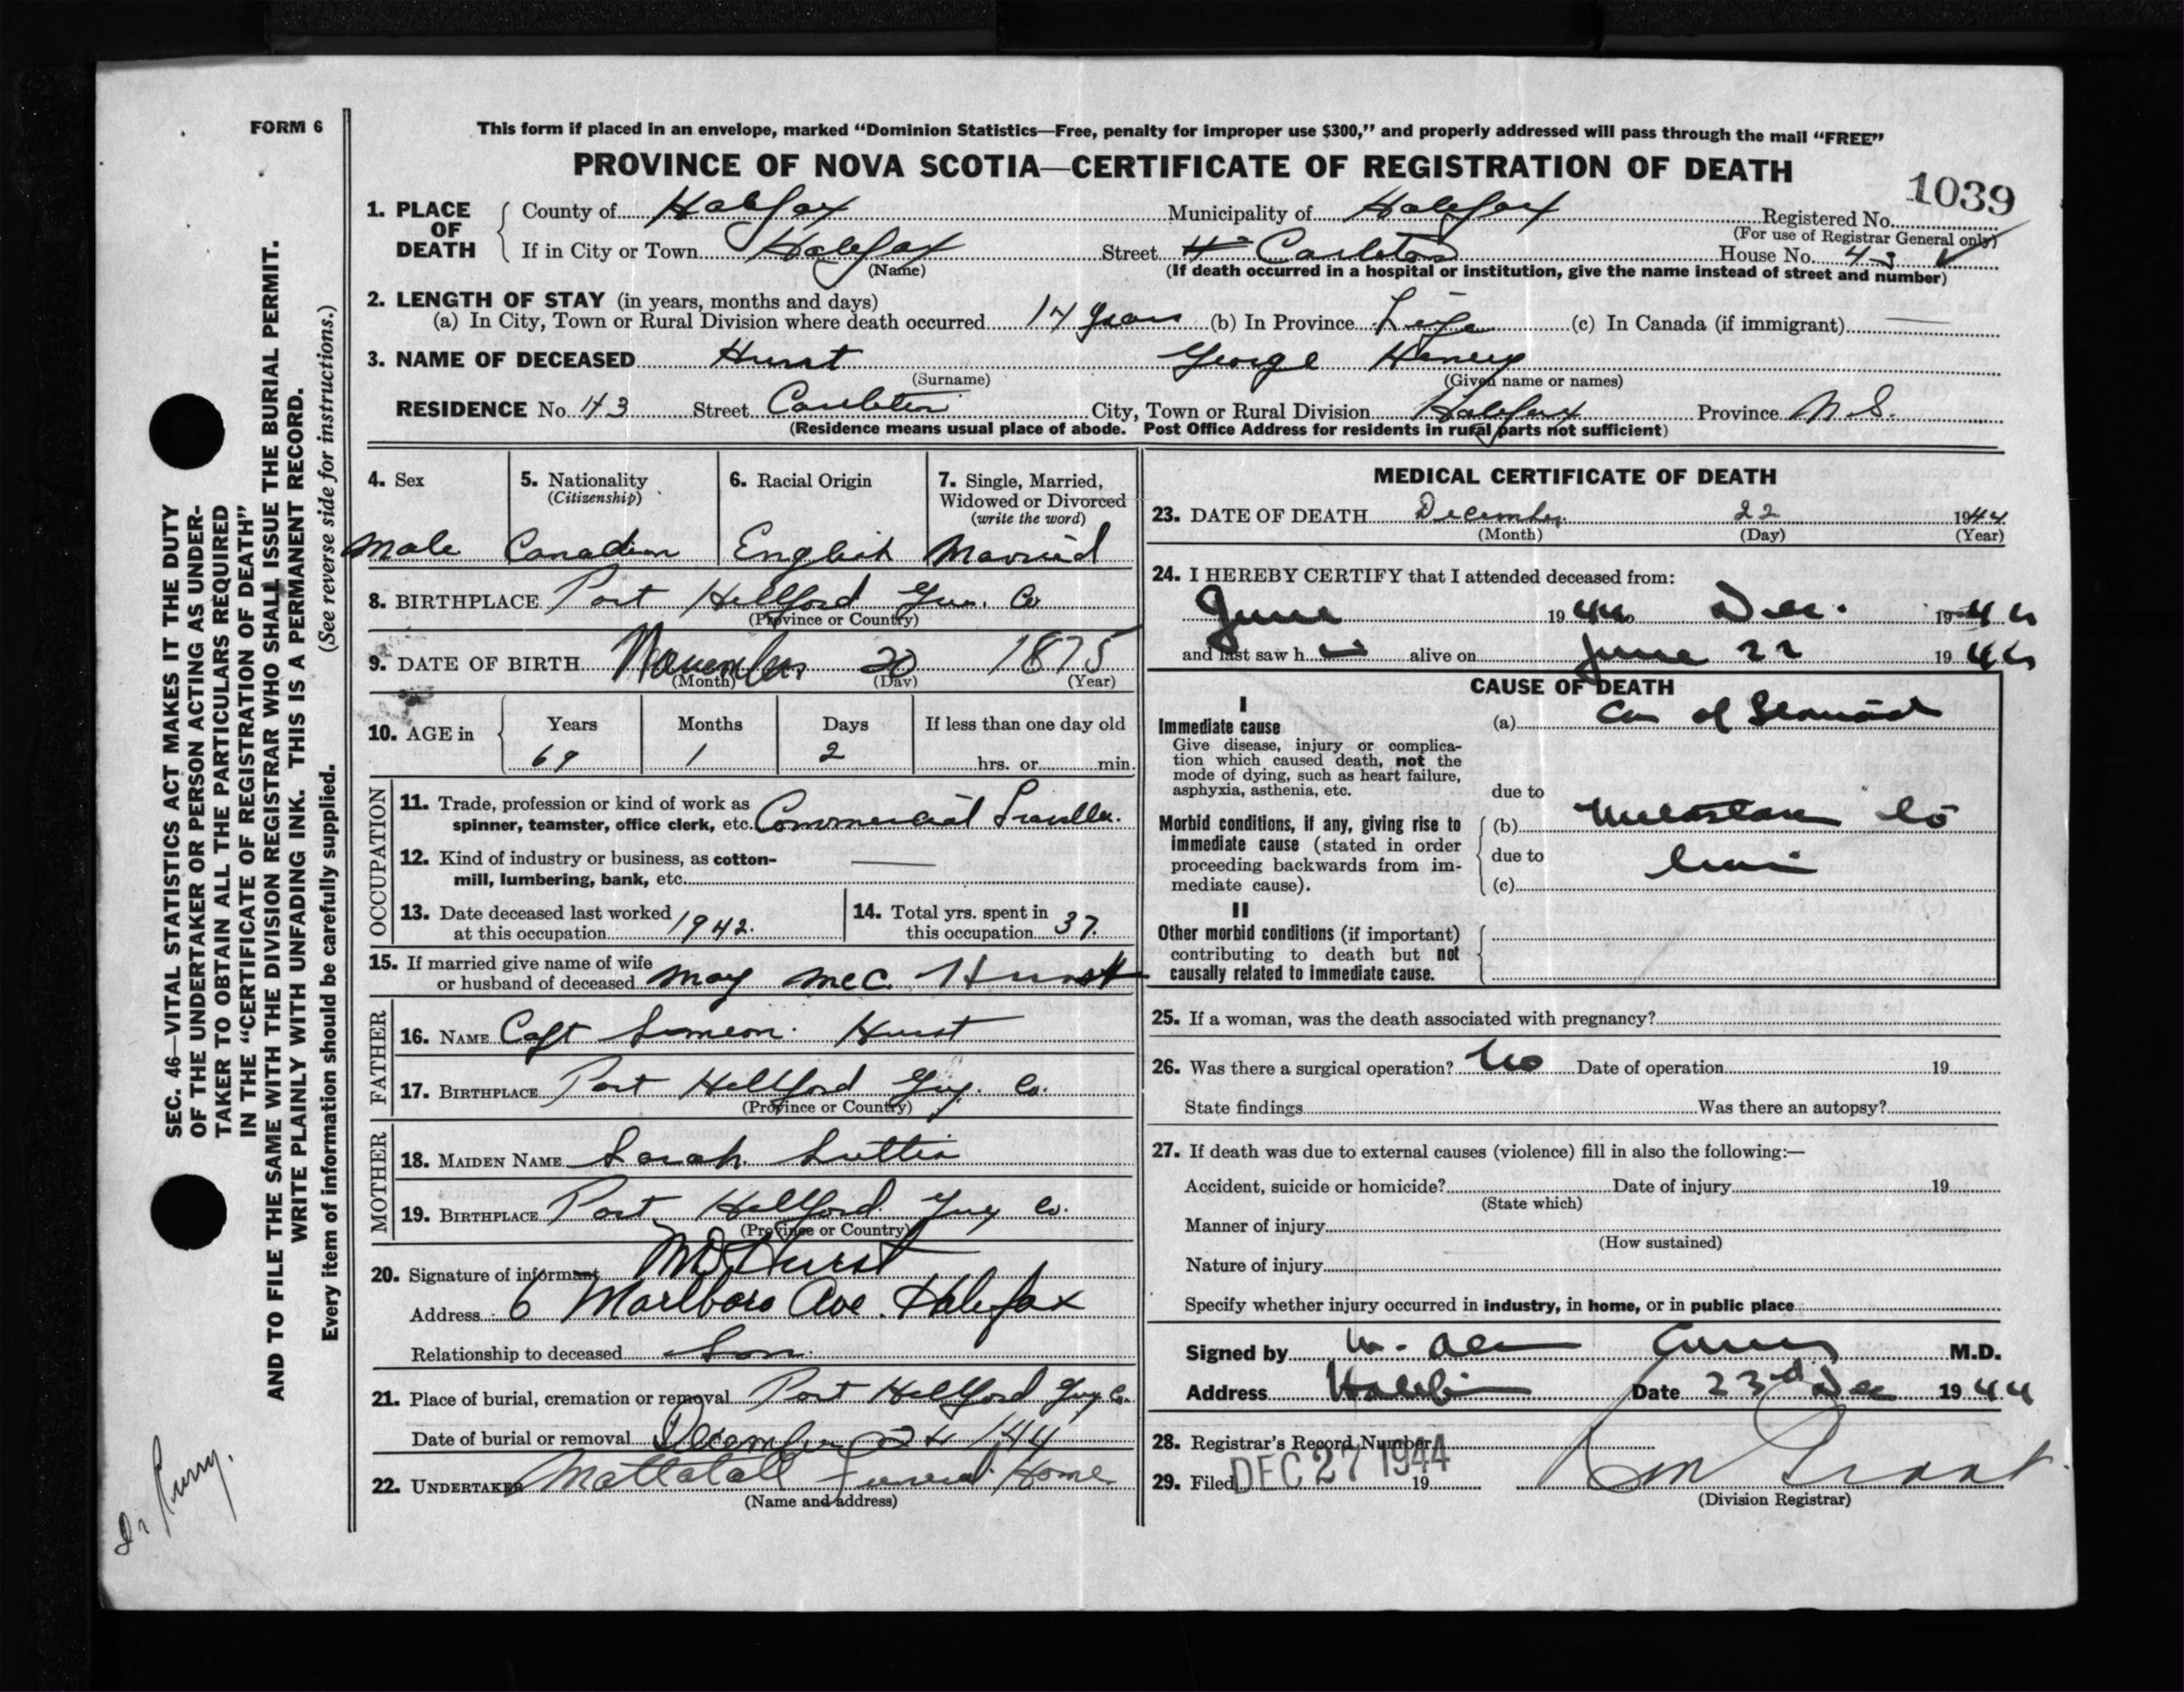 FORM 6
This form if placed in an envelope, marked “Dominion Statistics—Free, penalty for improper use $300,” and properly addressed will pass through the mail “FREE”
PROVINCE OF NOVA SCOTIA—CERTIFICATE OF REGISTRATION OF DEATH
1039
1. PLACE OF DEATH County of Halifax Municipality of Halifax Registered No.
(For use of Registrar General only)
If in City or Town Halifax Street Carleton House No. 43
(Name) (If death occurred in a hospital or institution, give the name instead of street and number)
2. LENGTH OF STAY (in years, months and days)
(a) In City, Town or Rural Division where death occurred 14 years (b) In Province Life (c) In Canada (if immigrant) —
3. NAME OF DECEASED Hurst George Henry
(Surname) (Given name or names)
RESIDENCE No. 43 Street Carleton City, Town or Rural Division Halifax Province N.S.
(Residence means usual place of abode. Post Office Address for residents in rural parts not sufficient)
4. Sex 5. Nationality 6. Racial Origin 7. Single, Married,
(Citizenship) Widowed or Divorced
(write the word)
Male Canadian English Married
8. BIRTHPLACE Port Hillford Guy. Co
(Province or Country)
9. DATE OF BIRTH November 20 1875
(Month) (Day) (Year)
10. AGE in Years Months Days If less than one day old
69 1 2 hrs. or min.
OCCUPATION
11. Trade, profession or kind of work as
spinner, teamster, office clerk, etc. Commercial Traveller.
12. Kind of industry or business, as cotton-
mill, lumbering, bank, etc. —
13. Date deceased last worked
at this occupation 1942.
14. Total yrs. spent in
this occupation 37.
15. If married give name of wife
or husband of deceased May McC. Hurst
FATHER
16. NAME Capt Simeon Hurst
17. BIRTHPLACE Port Hillford Guy. Co.
(Province or Country)
MOTHER
18. MAIDEN NAME Sarah
19. BIRTHPLACE Port Hillford Guy Co.
(Province or Country)
20. Signature of informant Hurst
Address 6 Marlboro Ave. Halifax
Relationship to deceased Son.
21. Place of burial, cremation or removal Port Hillford Guy Co.
Date of burial or removal December 24 1944
22. UNDERTAKER Mattatall Funeral Home
(Name and address)
MEDICAL CERTIFICATE OF DEATH
23. DATE OF DEATH December 22 1944
(Month) (Day) (Year)
24. I HEREBY CERTIFY that I attended deceased from:
June 1944 to Dec. 1944
and last saw h im alive on June 22 1944
CAUSE OF DEATH
I
Immediate cause (a) Ca of Stomach
Give disease, injury or complica-
tion which caused death, not the
mode of dying, such as heart failure,
asphyxia, asthenia, etc. due to
Morbid conditions, if any, giving rise to
immediate cause (stated in order
proceeding backwards from im-
mediate cause).
(b) Metastases to
due to
(c) liver
II
Other morbid conditions (if important)
contributing to death but not
causally related to immediate cause.
25. If a woman, was the death associated with pregnancy?
26. Was there a surgical operation? No Date of operation 19
State findings Was there an autopsy?
27. If death was due to external causes (violence) fill in also the following:—
Accident, suicide or homicide? Date of injury 19
(State which)
Manner of injury
(How sustained)
Nature of injury
Specify whether injury occurred in industry, in home, or in public place
Signed by M.D.
Address Halifax Date 23rd Dec 1944
28. Registrar's Record Number
29. Filed DEC 27 1944 19
(Division Registrar)
SEC. 46—VITAL STATISTICS ACT MAKES IT THE DUTY
OF THE UNDERTAKER OR PERSON ACTING AS UNDER-
TAKER TO OBTAIN ALL THE PARTICULARS REQUIRED
IN THE “CERTIFICATE OF REGISTRATION OF DEATH”
AND TO FILE THE SAME WITH THE DIVISION REGISTRAR WHO SHALL ISSUE THE BURIAL PERMIT.
WRITE PLAINLY WITH UNFADING INK. THIS IS A PERMANENT RECORD.
Every item of information should be carefully supplied. (See reverse side for instructions.)